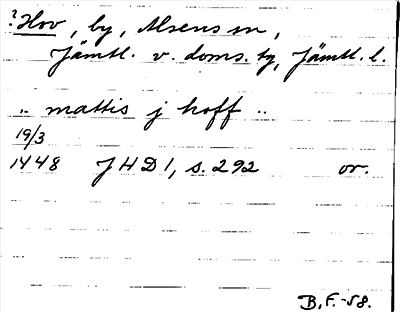 ? Hov, by, Alsens sn,
Jämtl. v. doms. tg, Jämtl. l.
.. mattis j hoff ..
19/3
1448 JHD1, s. 292 or.
B.F.-58.